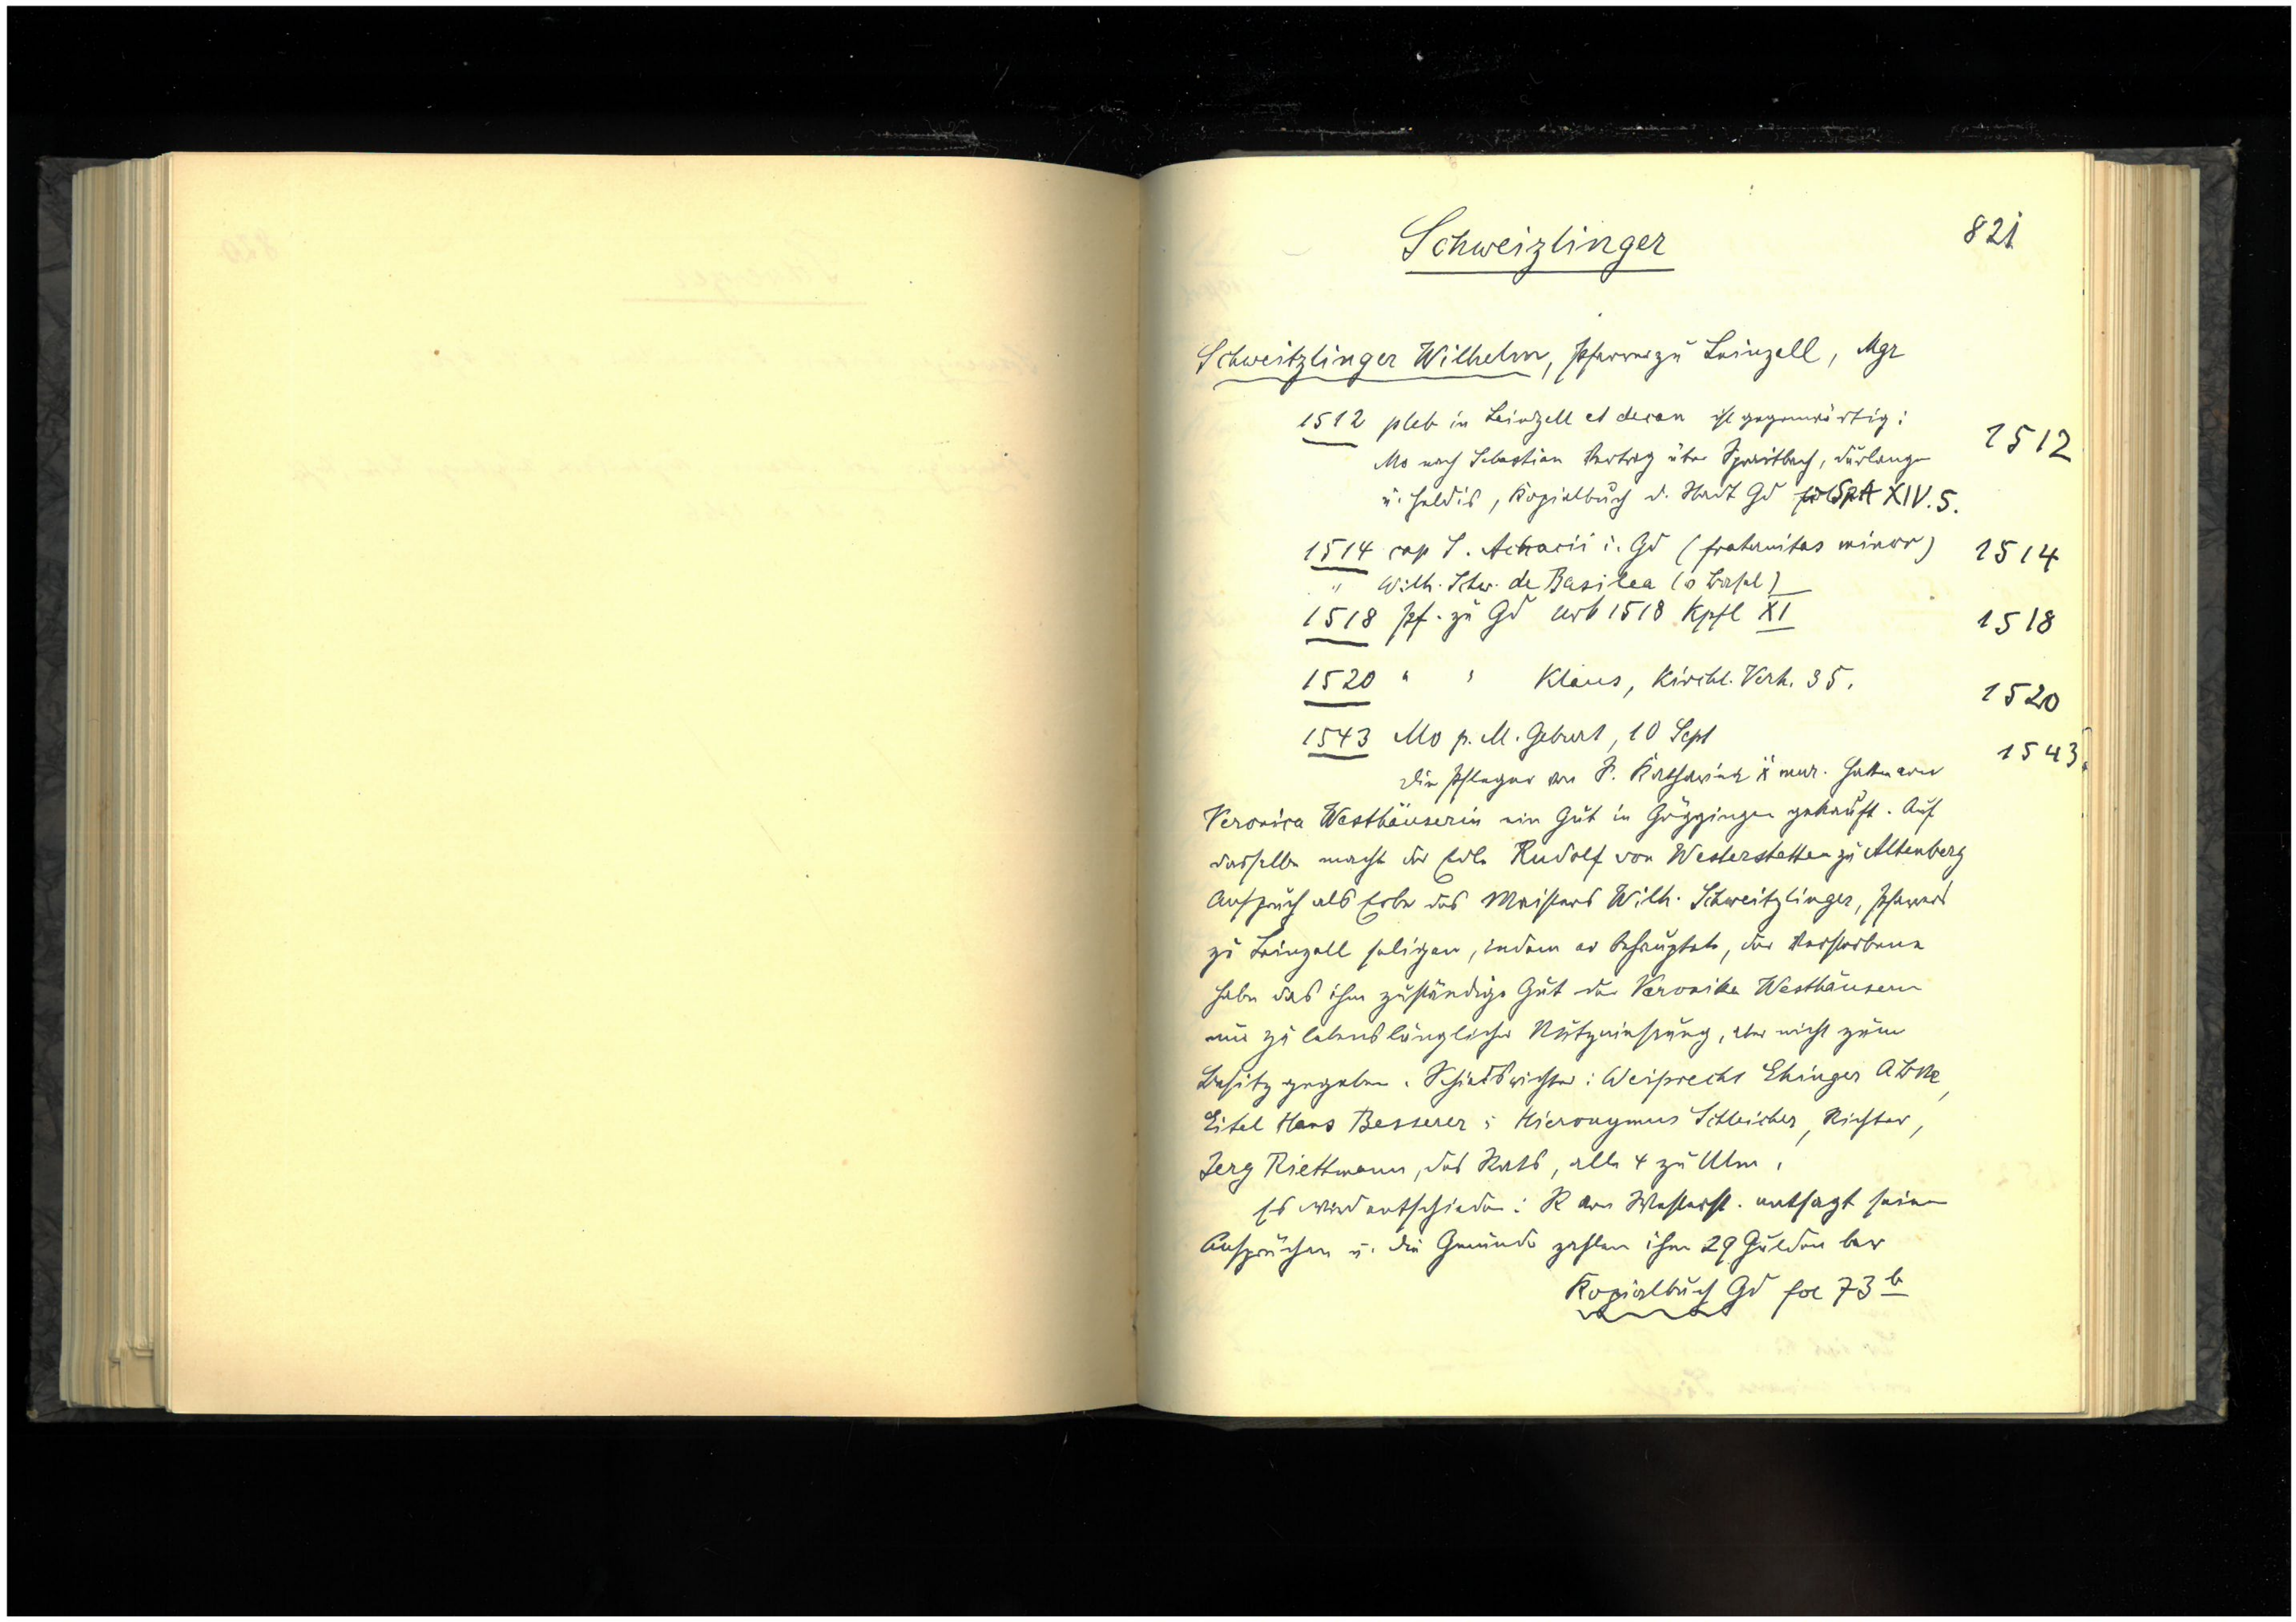 Schweizlinger 821
Schweitzlinger Wilhelm, Pfarrer zu Leinzell, Mgr
1512 pleb in Leinzell et decan ist gegenwärtig: 1512
Mo nach Sebastian Vertrag über Spraitbach, Durlangen
u. Haldis, Kopialbuch d. Stadt Gd SpA XIV.5.
1514 cap S. Achacii i. Gd (fraternitas minor) 1514
" Wilh. Schw. de Basilea (v Basel)
1518 Pf. zu Gd Urb 1518 Kpfl XI 1518
1520 " " Klaus, Kirchl. Verh. 35. 1520
1543 Mo p. M. Geburt, 10 Sept 1543
Die Pfleger von S. Katharina hatten von
Veronica Westhäuserin ein Gut in Göggingen gekauft. Auf
dasselbe macht der Edle Rudolf von Westerstetten zu Altenberg
Anspruch als Erbe des Meisters Wilh. Schweitzlinger, Pfarrers
zu Leinzell seligen, indem er behauptete, der Verstorbene
habe das ihm zuständige Gut der Veronika Westhäusern
nur zu lebenslänglicher Nutznießung, aber nicht zum
Besitz gegeben. Schiedsrichter: Weiprecht Ehinger
Eitel Hans Besserer; Hieronymus Schleicher, Richter,
Jerg Riettmann, des Rats, alle 4 zu Ulm.
Es wird entschieden: R von Westerst. entsagt seinen
Ansprüchen u. die Gmünder zahlen ihm 29 Gulden bar
Kopialbuch Gd fol 73 b